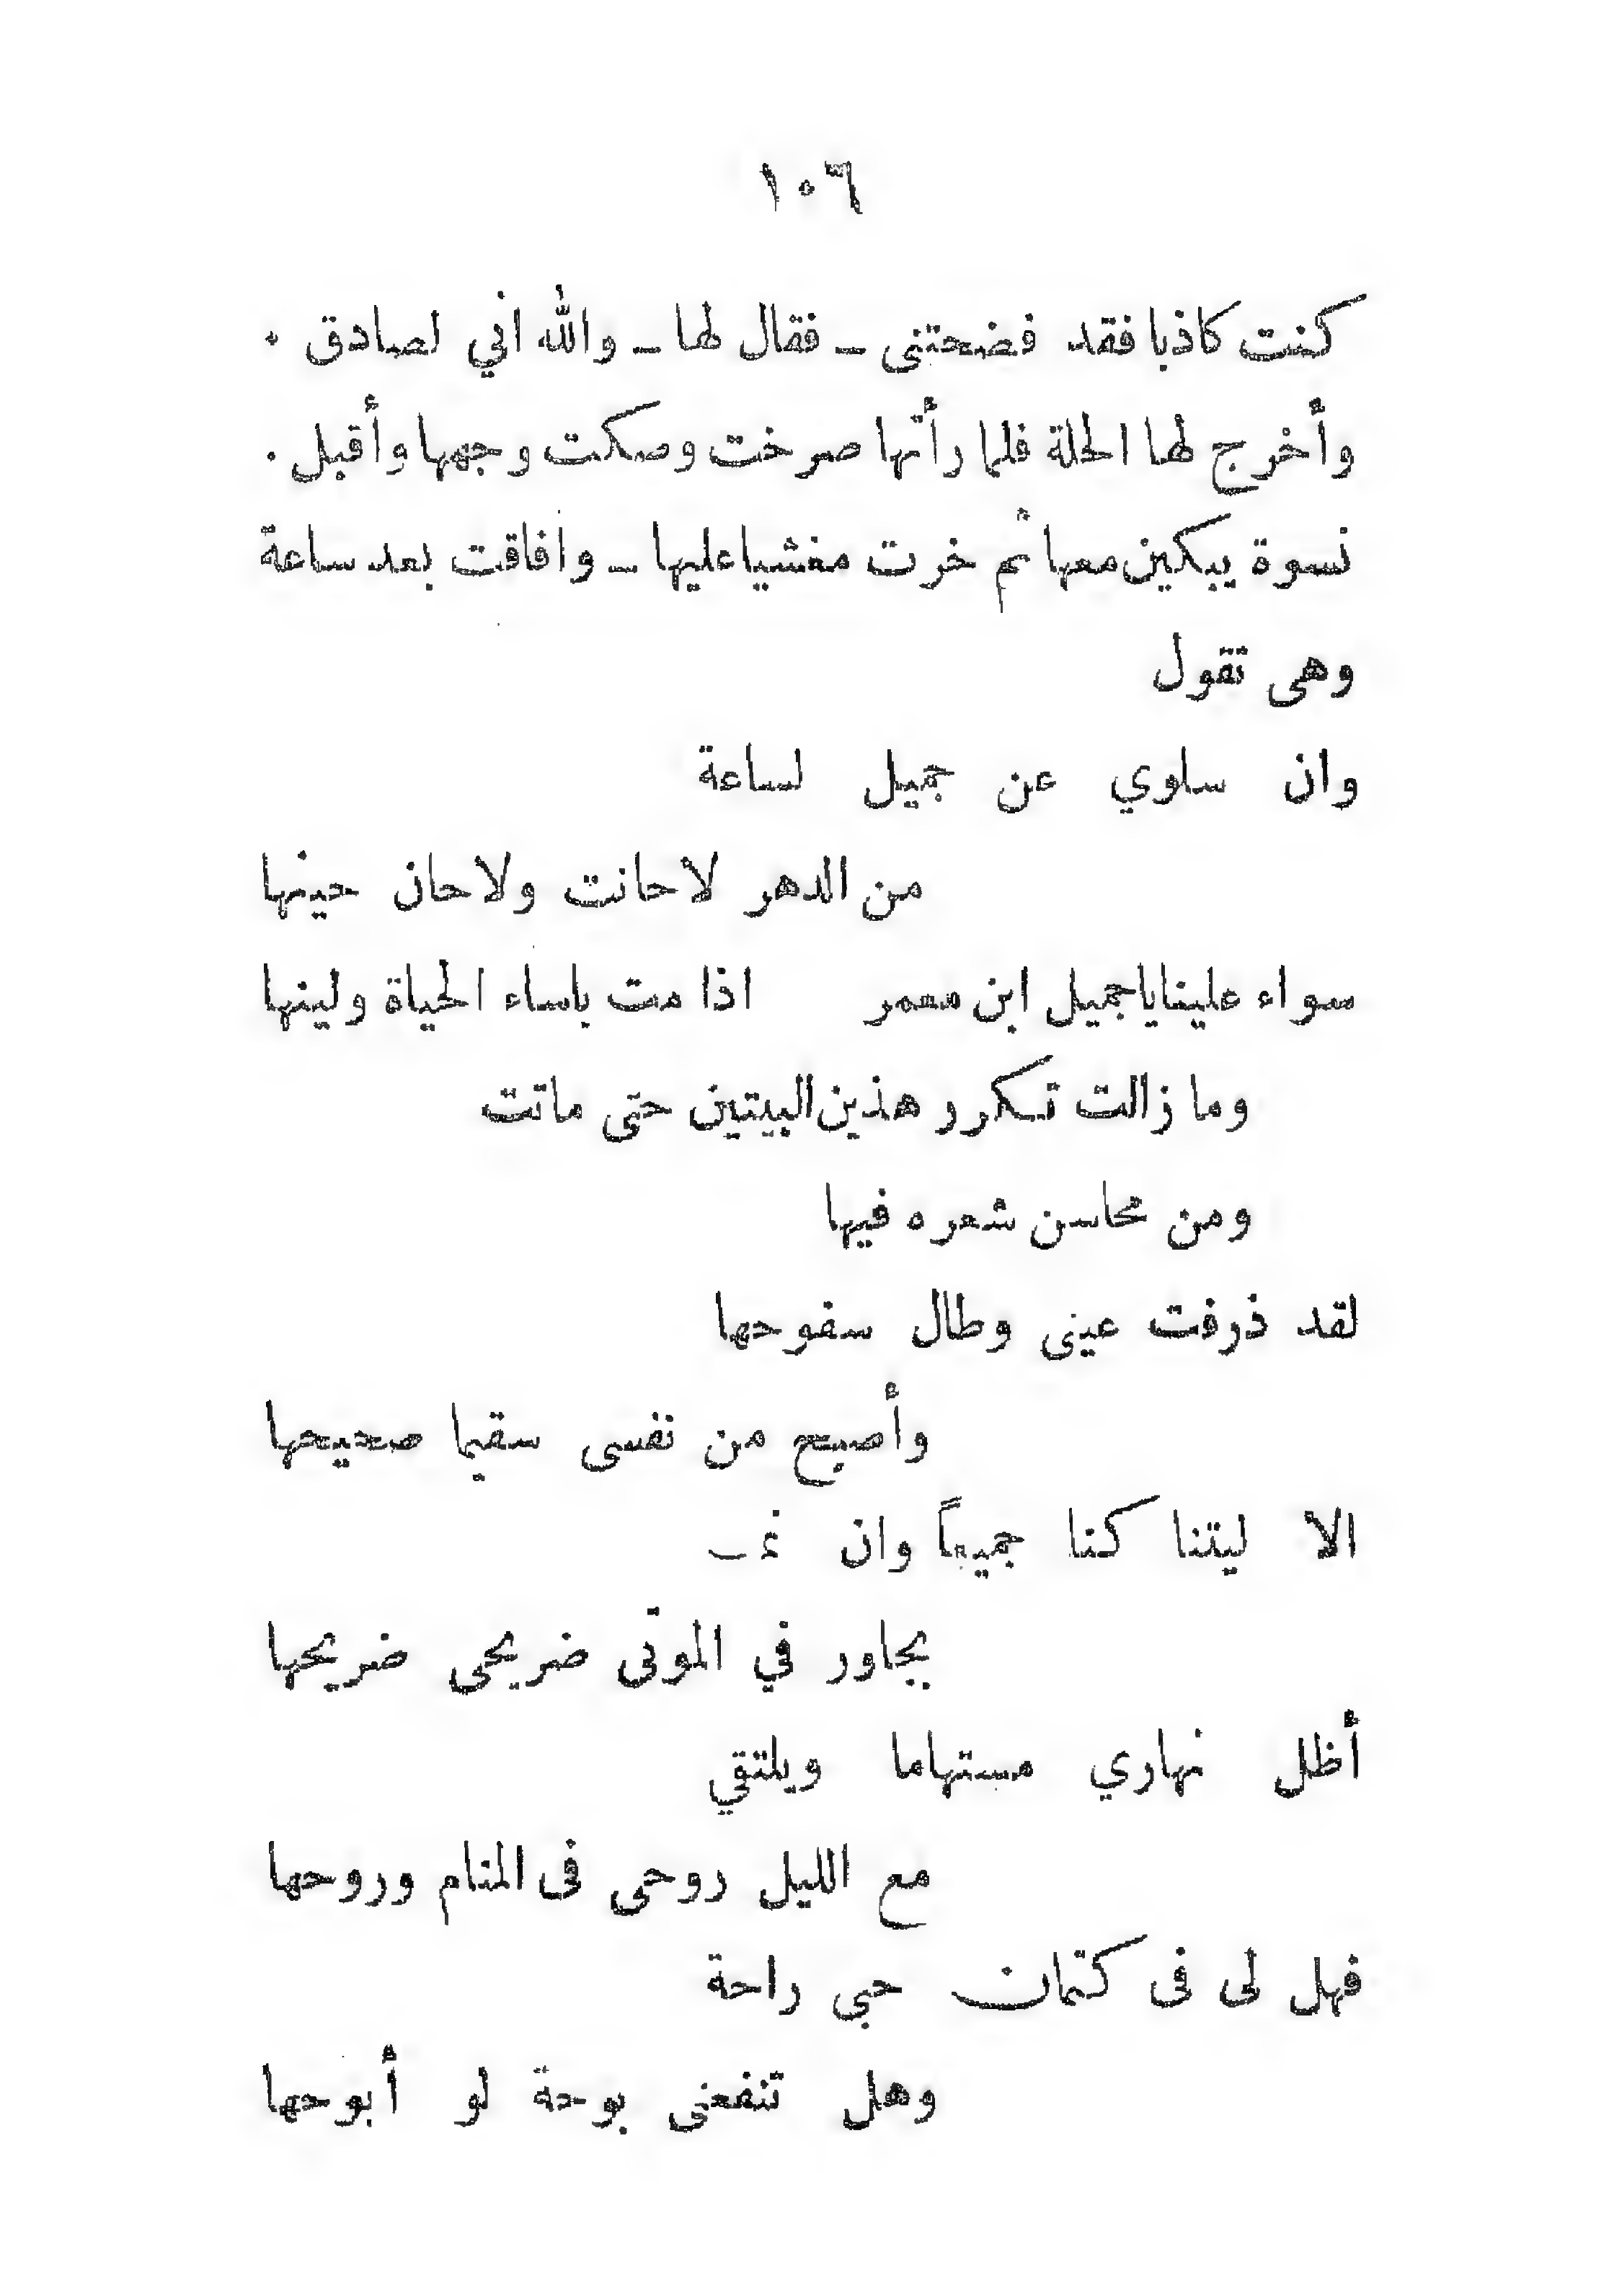 ١٠٦
كنت كاذبا فقد فضحتنى ــ فقال لها ــ والله اني لصادق .
وأخرج لها الحلة فلما رأتها صرخت وصكت وجهها وأقبل .
نسوة يبكين معها ثم خرت مغشيا عليها ــ وافاقت بعد ساعة
وهى تقول
وان سلوي عن جميل لساعة
من الدهر لا حانت ولا حان حينها
سواء علينا يا جميل ابن معمر اذا مت باساء الحياة ولينها
وما زالت تكرر هذين البيتين حتى ماتت
ومن محاسن شعره فيها
لقد ذرفت عينى وطال سفوحها
وأصبح من نفسى سقيما صحيحها
الا ليتنا كنا جميعاً وان
يجاور في الموتى ضريحى ضريحها
أظل نهاري مستهاما ويلتقي
مع الليل روحى فى المنام وروحها
فهل لى فى كتمان حبى راحة
وهل تنفعنى بوحة لو أبوحها